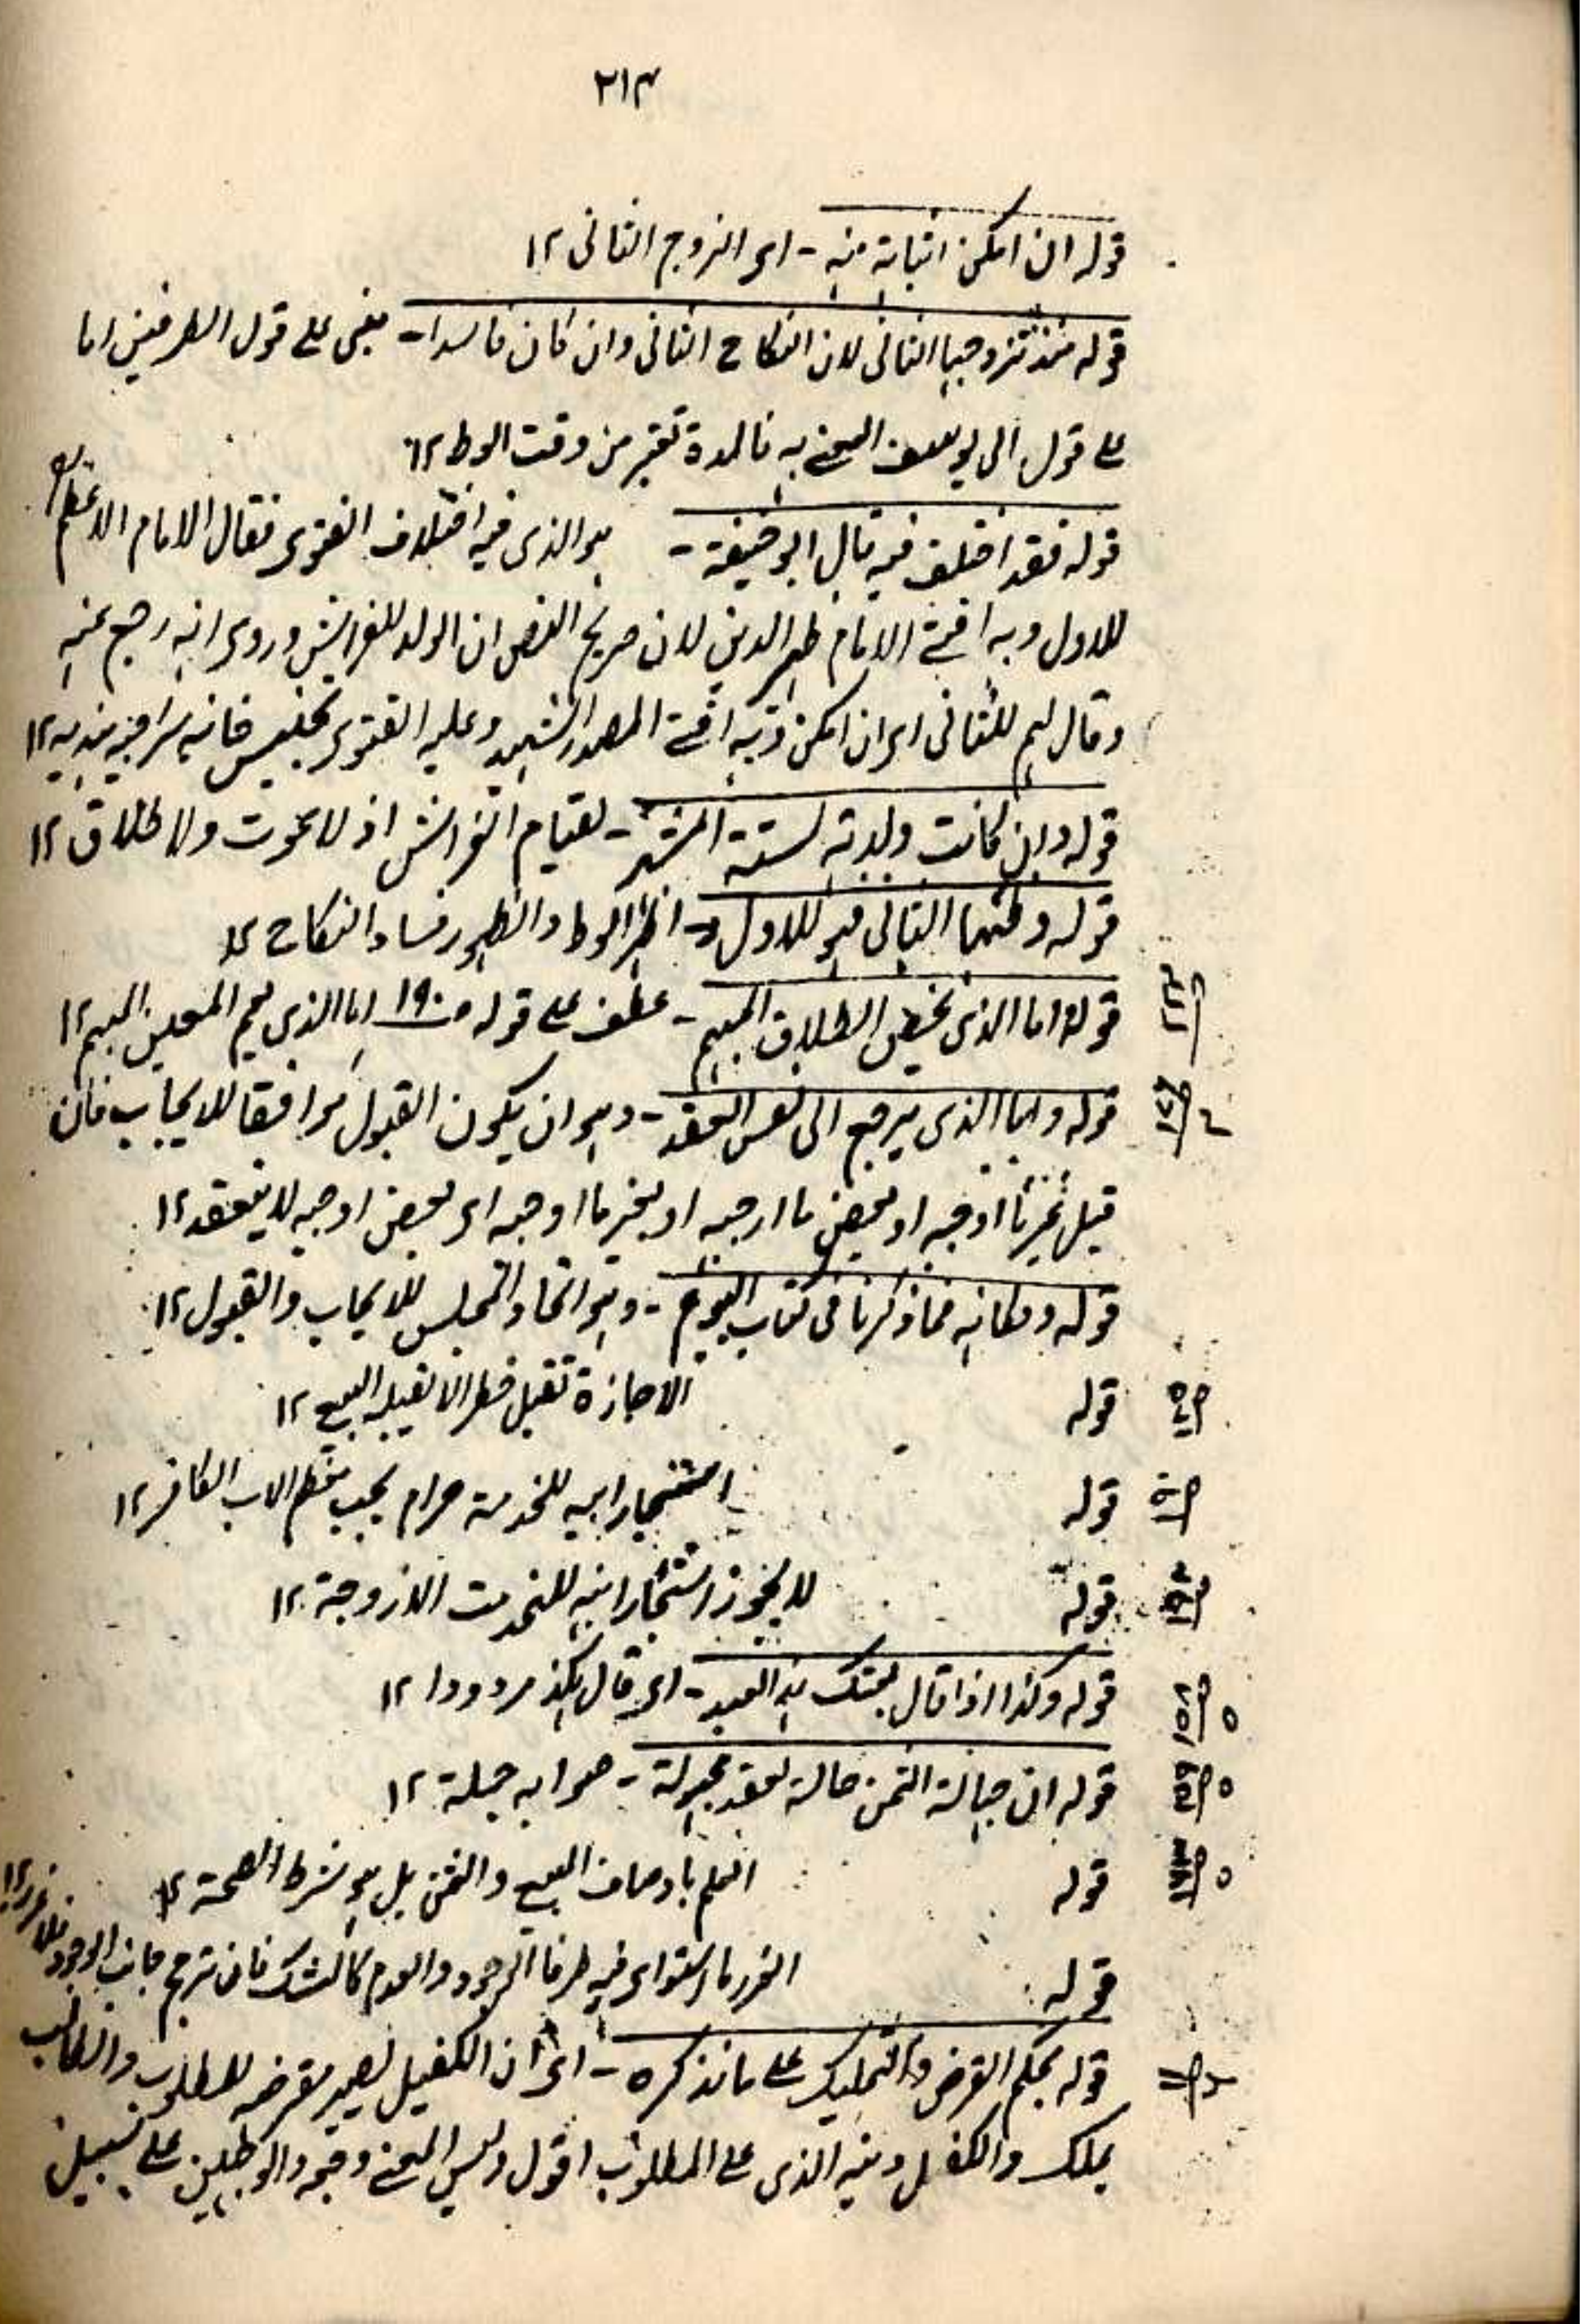 ٢١٤
قوله ان امكن اثباته منه - اى الزوج الثانى ١٢
قوله منذ تزوجها الثانى لان النكاح الثانى وان كان فاسدا - مبنى على قول الطرفين اما
على قول ابى يوسف المفتى به فالمدة تعتبر من وقت الوط ١٢
قوله فقد اختلف فيه قال ابو حنيفة - هو الذى فيه اختلاف الفتوى فقال الامام الاعظم
للاول وبه افتى الامام ظهير الدين لان صريح النص ان الولد للفراش وروى انه رجع عنه
وقال هم للثانى اى ان امكن وبه افتى الصدر الشهيد وعليه الفتوى تجنيس خانيه سراجيه هنديه ١٢
قوله وان كانت ولدته لستة اشهر - لقيام الفراش اذ لا موت ولا طلاق ١٢
قوله وطئها الثانى فهو للاول - الوط و لظهور فساد النكاح ١٢
قوله واما الذى يخص الطلاق المبهم - عطف على قوله ص ١٩٠ اما الذى يعم المعين المبهم ١٢
قوله واما الذى يرجع الى نفس العقد - وهو ان يكون القبول موافقا للايجاب فان
قبل غير ما اوجبه او بعض ما اوجبه او بغير ما اوجبه اى بعض اوجبه لا ينعقد ١٢
قوله ومكانه فما ذكرنا فى كتاب البيوع - وهو اتحاد المجلس للايجاب والقبول ١٢
قوله الاجازة تقبل الا يقبله البيع ١٢
قوله استيجار ابيه للخدمة حرام يجب تعظيم الاب الكافر ١٢
قوله لا يجوز استئجار ابنه للخدمت الا زوجة ١٢
قوله وكذا اذا قال بعتك هذا العبد - اى قال بكذا مردودا ١٢
قوله ان جهالة الثمن حالة العقد مجهولة - صوابه جملة ١٢
قوله العلم باوصاف المبيع والثمن بل هو شرط الصحة ١٢
قوله الغرر ما استوى فيه طرفا الوجود والعدم كالشك فان ترجح جانب الوجود فلا غرر ١٢
قوله بحكم القرض والتمليك على ما نذكره - اى ان الكفيل يصير مقرضه للمطلوب والطالب
يملك والكفيل دينه الذى على المطلوب اقول وليس المعنى وجود التمليكين على سبيل